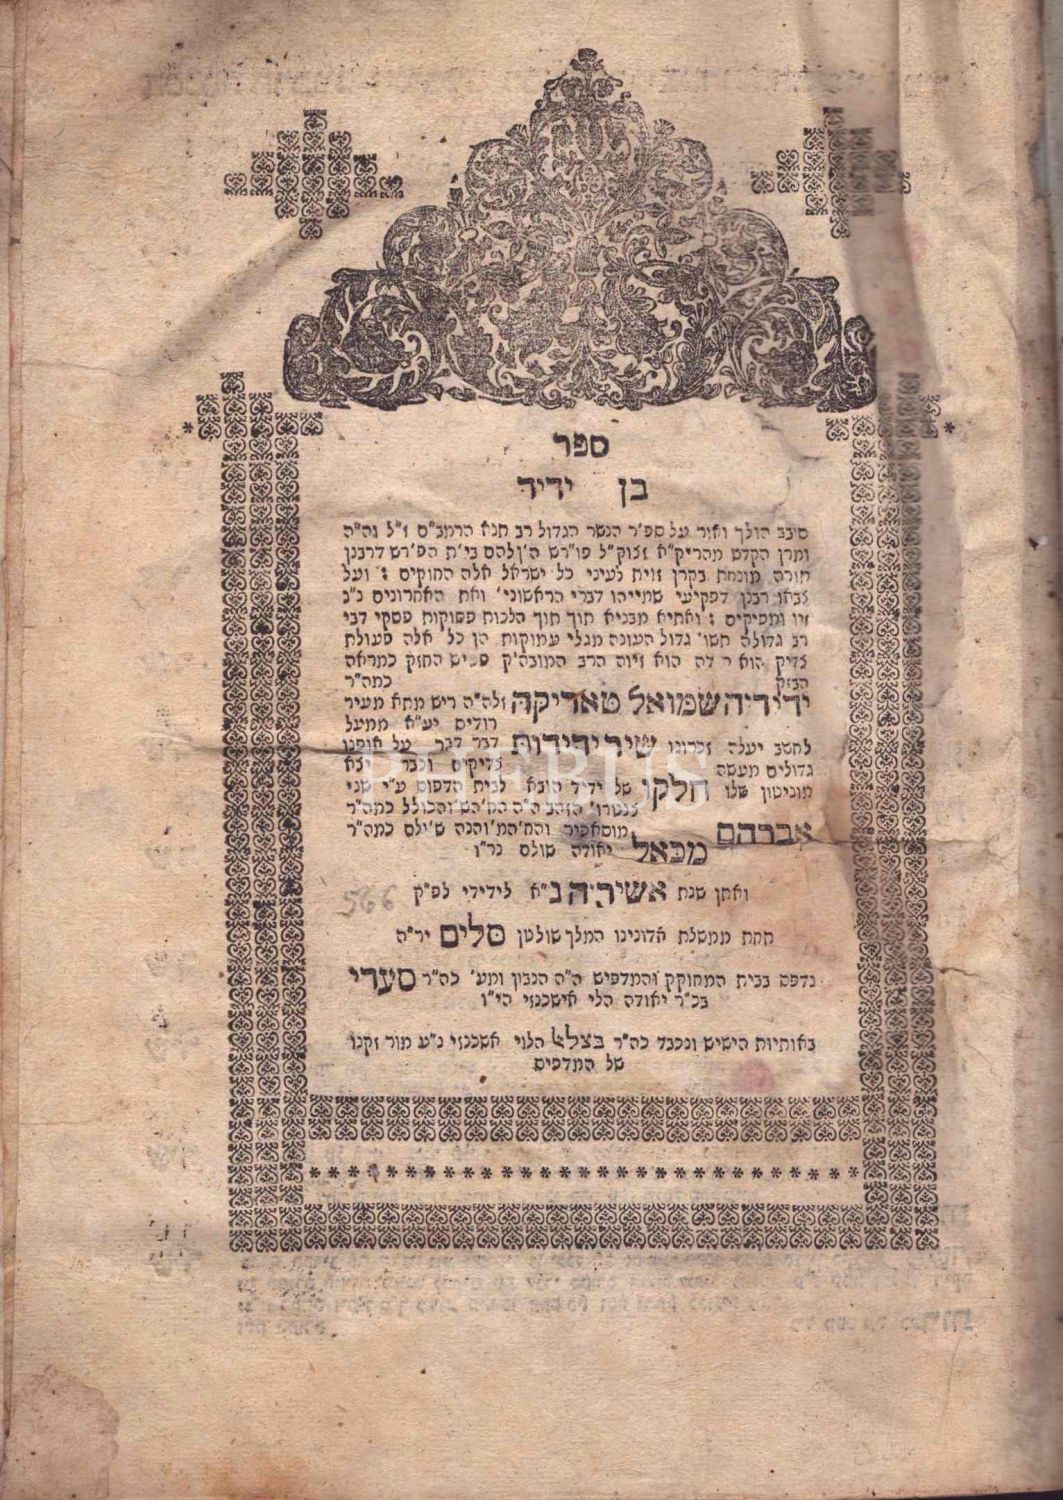 ספר
בן ידיד
סובב הולך ואור על ספ״ר הנשר הגדול רב תנא הרמב״ם ז״ל נה״ה
ומרן הקדם מהריק״א זצוק״ל פו״רש בי״ת הפ״רש דרבנן
תורה מונחת בקרן זוית לעיני כל ישראל אלה החוקים : ועל
צבאו רבנן דפקיעי שתייהו דברי הראשוני׳ ואת האחרונים נ״נ
זיו ומפיקים : ואתיא מבניא תוך תוך הלכות פסוקות פסקי דבי
רב גדולה חשו׳ גדול העונה מגלי עמוקות הן כל אלה פעולת
צדיק הוא זיוה הרב המובהק החזק כמראה
הבזק כמה״ר
ידידיה שמואל טאריקה זלה״ה ריש מתא מעיר
רודים יע״א ממעל
לחשב יעלה זכרונו שיר ידידות דבר דבר על אופנו
גדולים מעשה צדיקים וכבר יצא
מוניטון שלו חלקו של ידיד הובא לבית הדפוס ע״י שני
אברהם מוסאפיר כמה״ר
מכאל יאודה שולם נר״ו
ואתן שנת אשירה נ״א לידידי לפ״ק
566
תחת ממשלת אדונינו המלך שולטן סלים יר״ה
נדפס בבית המחוקק והמדפיס ה״ה הנבון ומע׳ כה״ר סעדי
בכ״ר יאודה הלוי אשכנזי הי״ו
באותיות הישיש ונכבד כה״ר בצלאל הלוי אשכנזי נ״ע מור זקנו
של המדפיס
PHEBUS